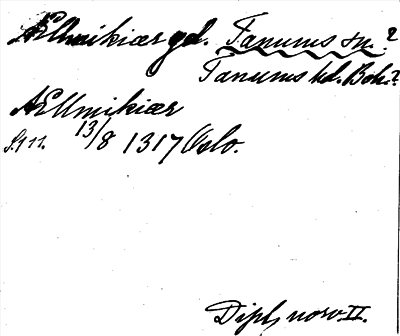 Ællmikiær gd. Tanums sn.?
Tanums hd. Boh.?
Ællmikiær
S. 111. 13/8 1317 Oslo.
Dipl. norv. II.